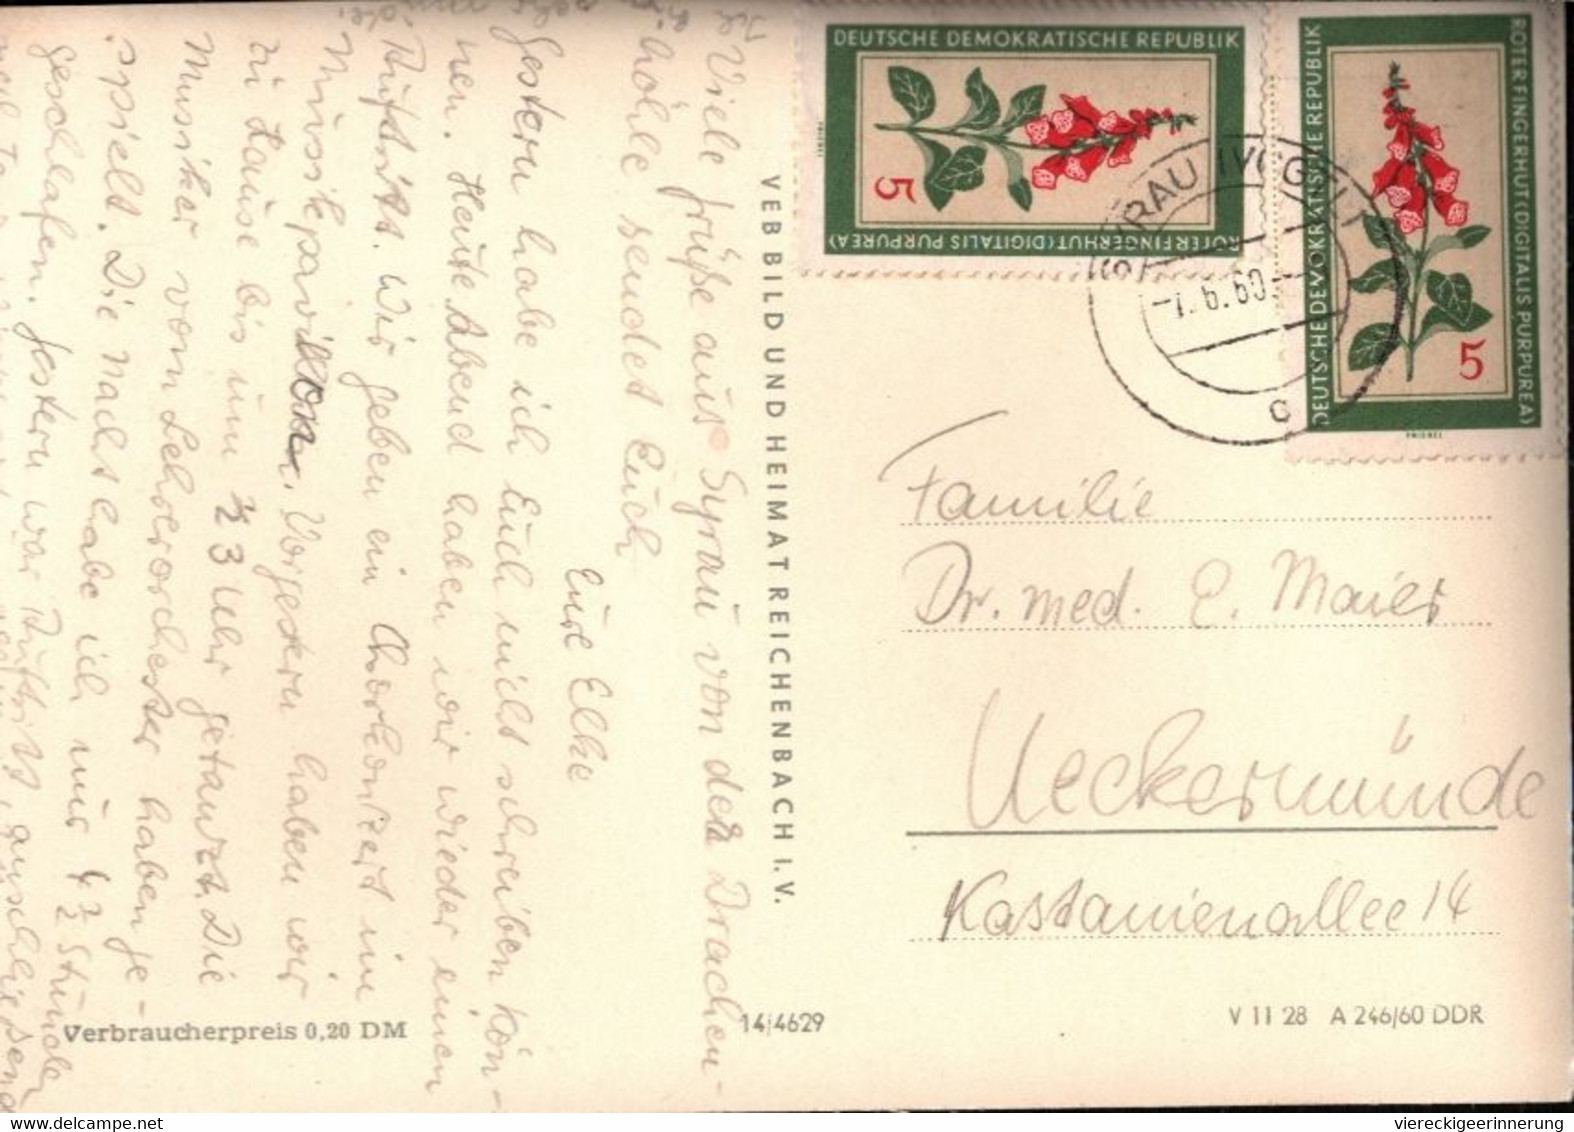 Viele Grüße aus Syrau von der Drachen-
höhle sendet Euch
Eure Elke
Gestern habe ich Euch nicht schreiben kön-
nen. Heute Abend haben wir wieder einen
Auftritt. Wir geben ein Chorkonzert im
Musikpavillon. Vorgestern haben wir
zu Hause bis um ½ 3 Uhr getanzt. Die
Musiker vom Lehrerorchester haben ge-
spielt. Die Nacht habe ich nur 4 ½ Stunden
geschlafen. Gestern war Auftritt, anschließend
VEB BILD UND HEIMAT REICHENBACH I. V.
Verbraucherpreis 0,20 DM
14/4629
DEUTSCHE DEMOKRATISCHE REPUBLIK
5
ROTER FINGERHUT (DIGITALIS PURPUREA)
PRIEBEL
DEUTSCHE DEMOKRATISCHE REPUBLIK
5
ROTER FINGERHUT (DIGITALIS PURPUREA)
PRIEBEL
SYRAU (VOGTL)
-7.6.60.-
c
Familie
Dr. med. E. Maier
Ueckermünde
Kastanienallee 14
V 11 28 A 246/60 DDR
delcampe.net
viereckigeerinnerung